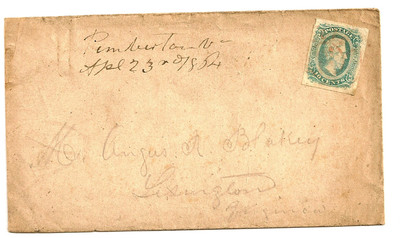 Pemberton Va
Apl 23rd/864
POSTAGE
TEN CENTS
Mr. Angus R. Blakey
Lexington
Virginia